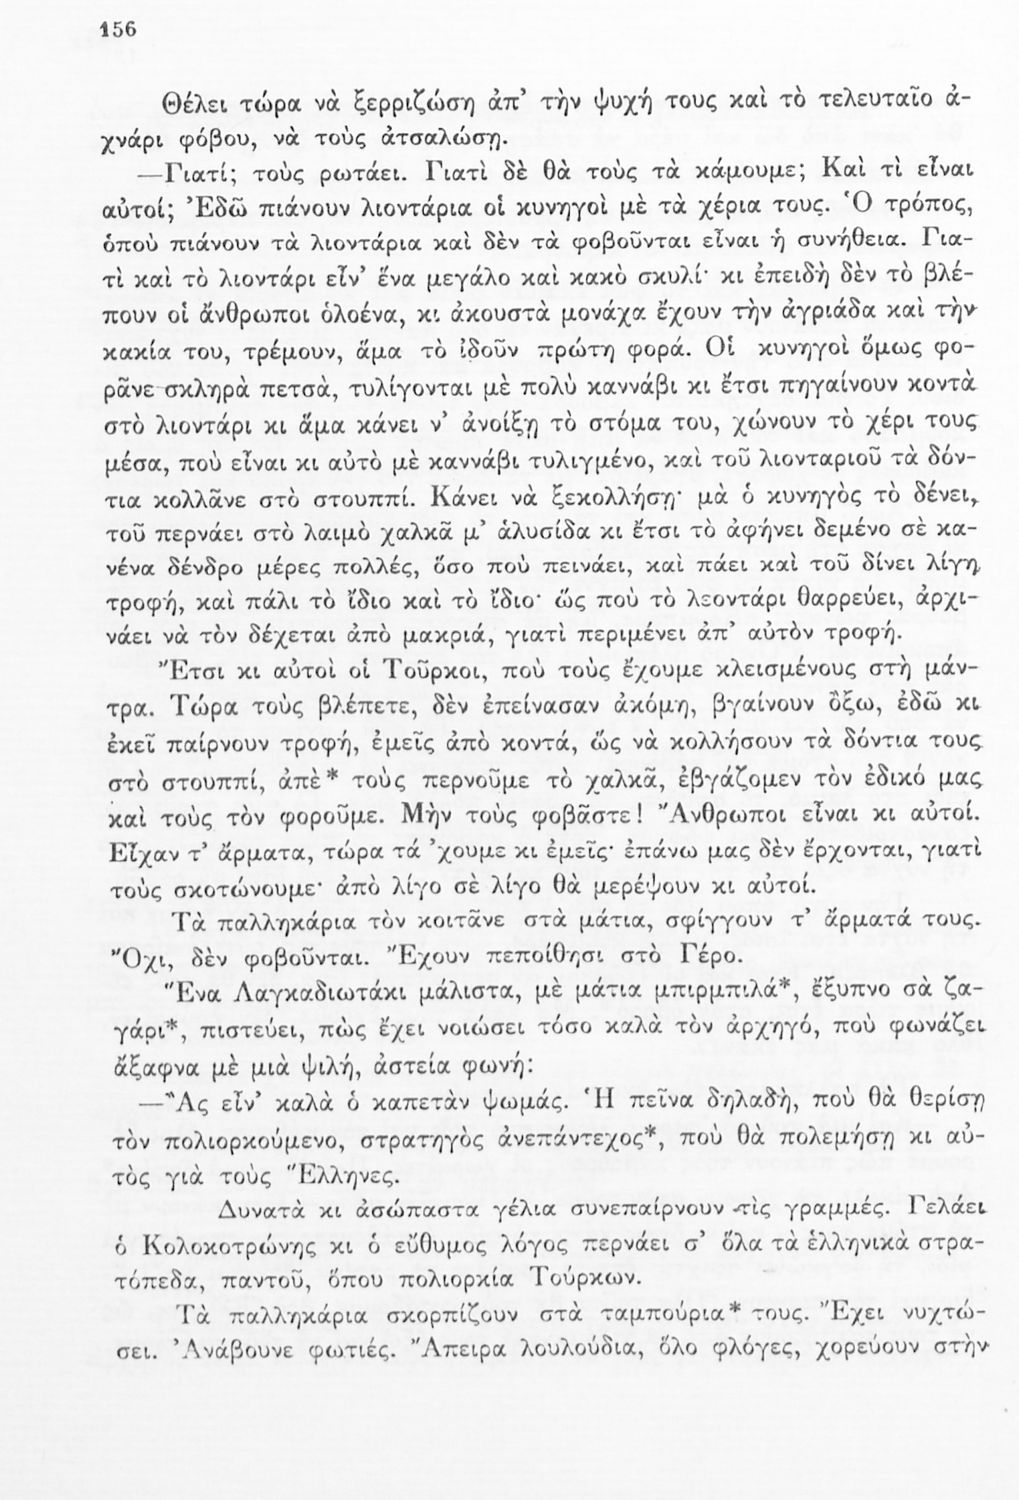 156
Θέλει τώρα νὰ ξερριζώση ἀπ’ τὴν ψυχή τους καὶ τὸ τελευταῖο ἀ-
χνάρι φόβου, νὰ τοὺς ἀτσαλώσῃ.
—Γιατί; τοὺς ρωτάει. Γιατὶ δὲ θὰ τοὺς τὰ κάμουμε; Καὶ τὶ εἶναι
αὐτοί; Ἐδῶ πιάνουν λιοντάρια οἱ κυνηγοὶ μὲ τὰ χέρια τους. Ὁ τρόπος,
ὁποὺ πιάνουν τὰ λιοντάρια καὶ δὲν τὰ φοβοῦνται εἶναι ἡ συνήθεια. Για-
τὶ καὶ τὸ λιοντάρι εἶν’ ἕνα μεγάλο καὶ κακὸ σκυλί· κι ἐπειδὴ δὲν τὸ βλέ-
πουν οἱ ἄνθρωποι ὁλοένα, κι ἀκουστὰ μονάχα ἔχουν τὴν ἀγριάδα καὶ τὴν
κακία του, τρέμουν, ἅμα τὸ ἰδοῦν πρώτη φορά. Οἱ κυνηγοὶ ὅμως φο-
ρᾶνε σκληρὰ πετσά, τυλίγονται μὲ πολὺ καννάβι κι ἔτσι πηγαίνουν κοντὰ
στὸ λιοντάρι κι ἅμα κάνει ν’ ἀνοίξῃ τὸ στόμα του, χώνουν τὸ χέρι τους
μέσα, ποὺ εἶναι κι αὐτὸ μὲ καννάβι τυλιγμένο, καὶ τοῦ λιονταριοῦ τὰ δόν-
τια κολλᾶνε στὸ στουππί. Κάνει νὰ ξεκολλήσῃ· μὰ ὁ κυνηγὸς τὸ δένει,
τοῦ περνάει στὸ λαιμὸ χαλκᾶ μ’ ἁλυσίδα κι ἔτσι τὸ ἀφήνει δεμένο σὲ κα-
νένα δένδρο μέρες πολλές, ὅσο ποὺ πεινάει, καὶ πάει καὶ τοῦ δίνει λίγη
τροφή, καὶ πάλι τὸ ἴδιο καὶ τὸ ἴδιο· ὥς ποὺ τὸ λεοντάρι θαρρεύει, ἀρχι-
νάει νὰ τὸν δέχεται ἀπὸ μακριά, γιατὶ περιμένει ἀπ’ αὐτὸν τροφή.
Ἔτσι κι αὐτοὶ οἱ Τοῦρκοι, ποὺ τοὺς ἔχουμε κλεισμένους στὴ μάν-
τρα. Τώρα τοὺς βλέπετε, δὲν ἐπείνασαν ἀκόμη, βγαίνουν ὄξω, ἐδῶ κι
ἐκεῖ παίρνουν τροφή, ἐμεῖς ἀπὸ κοντά, ὥς νὰ κολλήσουν τὰ δόντια τους
στὸ στουππί, ἀπὲ* τοὺς περνοῦμε τὸ χαλκᾶ, ἐβγάζομεν τὸν ἐδικό μας
καὶ τοὺς τὸν φοροῦμε. Μὴν τοὺς φοβᾶστε! Ἄνθρωποι εἶναι κι αὐτοί.
Εἶχαν τ’ ἄρματα, τώρα τά ’χουμε κι ἐμεῖς· ἐπάνω μας δὲν ἔρχονται, γιατὶ
τοὺς σκοτώνουμε· ἀπὸ λίγο σὲ λίγο θὰ μερέψουν κι αὐτοί.
Τὰ παλληκάρια τὸν κοιτᾶνε στὰ μάτια, σφίγγουν τ’ ἄρματά τους.
Ὄχι, δὲν φοβοῦνται. Ἔχουν πεποίθησι στὸ Γέρο.
Ἕνα Λαγκαδιωτάκι μάλιστα, μὲ μάτια μπιρμπιλά*, ἔξυπνο σὰ ζα-
γάρι*, πιστεύει, πὼς ἔχει νοιώσει τόσο καλὰ τὸν ἀρχηγό, ποὺ φωνάζει
ἄξαφνα μὲ μιὰ ψιλή, ἀστεία φωνή:
—Ἂς εἶν’ καλὰ ὁ καπετὰν ψωμάς. Ἡ πεῖνα δηλαδή, ποὺ θὰ θερίσῃ
τὸν πολιορκούμενο, στρατηγὸς ἀνεπάντεχος*, ποὺ θὰ πολεμήσῃ κι αὐ-
τὸς γιὰ τοὺς Ἕλληνες.
Δυνατὰ κι ἀσώπαστα γέλια συνεπαίρνουν τὶς γραμμές. Γελάει
ὁ Κολοκοτρώνης κι ὁ εὔθυμος λόγος περνάει σ’ ὅλα τὰ ἑλληνικὰ στρα-
τόπεδα, παντοῦ, ὅπου πολιορκία Τούρκων.
Τὰ παλληκάρια σκορπίζουν στὰ ταμπούρια* τους. Ἔχει νυχτώ-
σει. Ἀνάβουνε φωτιές. Ἄπειρα λουλούδια, ὅλο φλόγες, χορεύουν στὴν